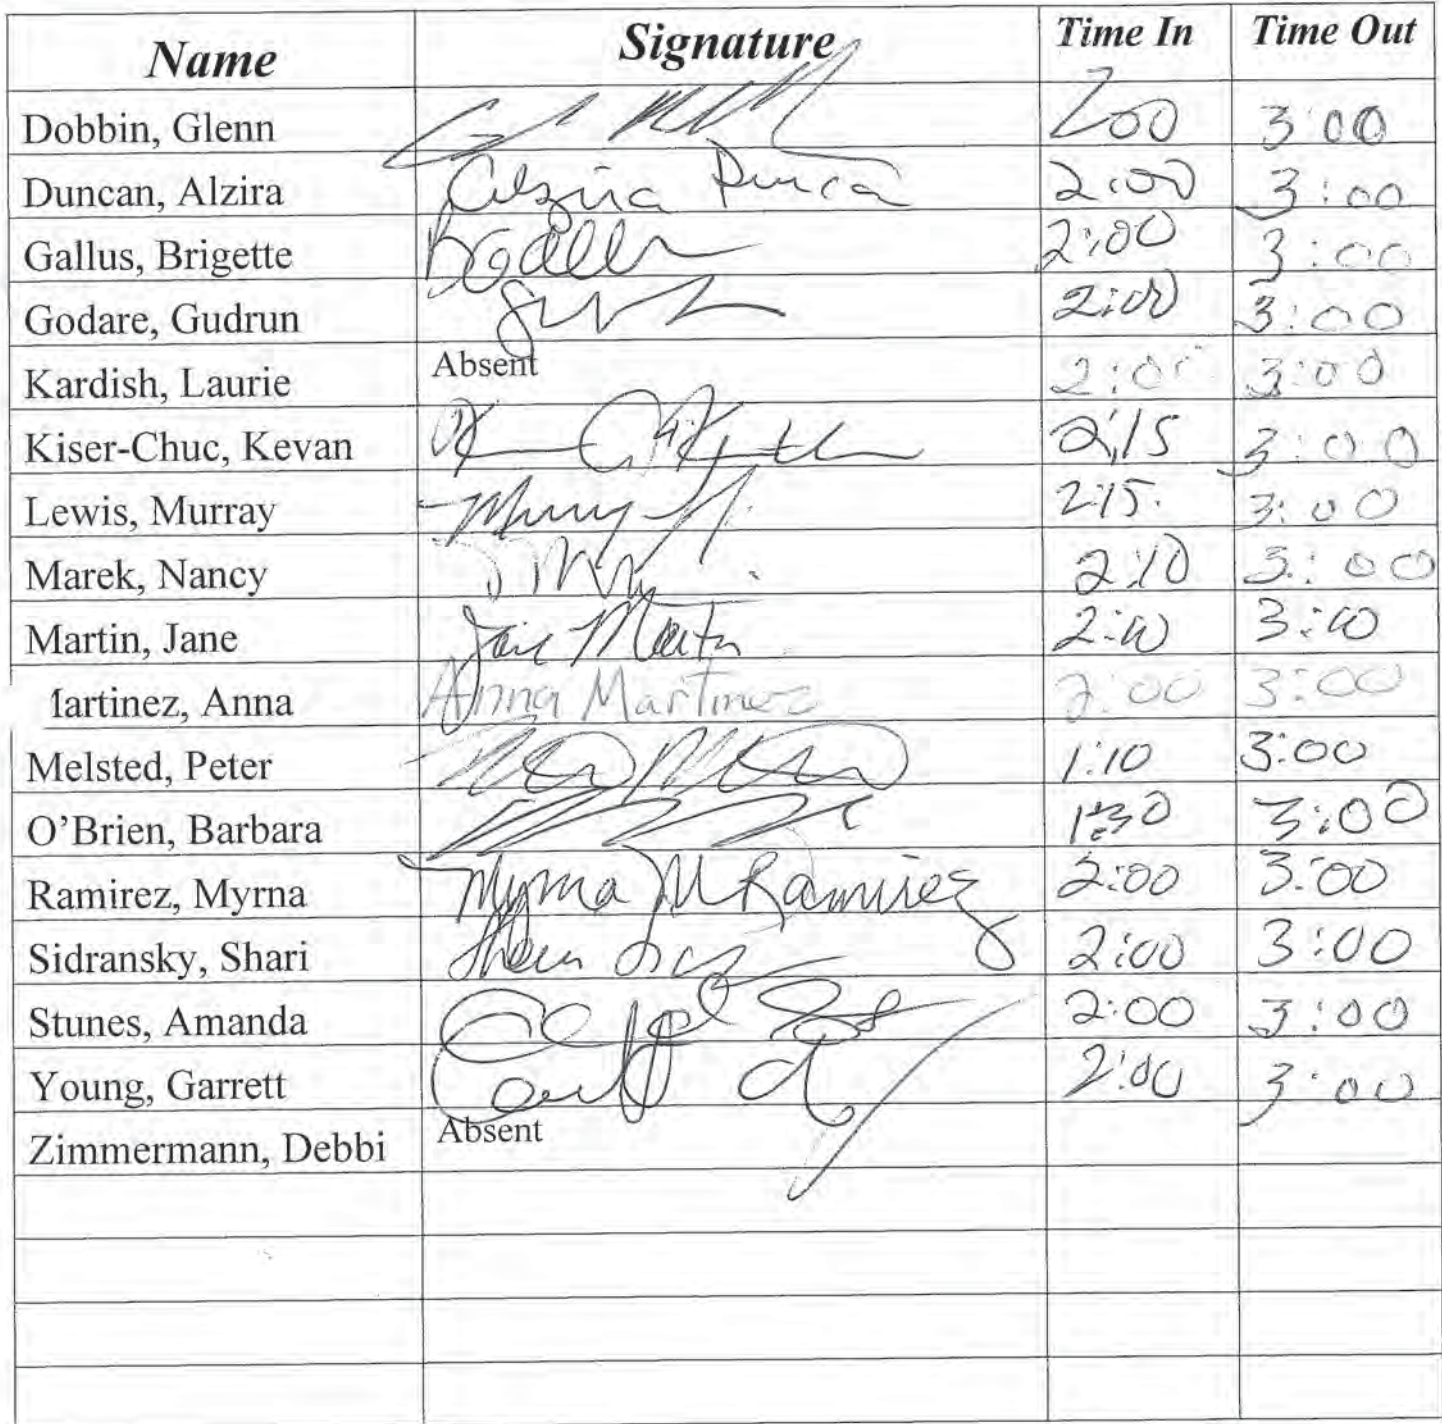 Name Signature Time In Time Out
Dobbin, Glenn 200 3:00
Duncan, Alzira Alzira 2:00 3:00
Gallus, Brigette 2:00 3:00
Godare, Gudrun 2:00 3:00
Kardish, Laurie Absent 2:0 3:00
Kiser-Chuc, Kevan 2:15 3:00
Lewis, Murray 2:15. 3:00
Marek, Nancy 2:10 3:00
Martin, Jane Jane Martin 2:00 3:00
Martinez, Anna Anna Martinez 2:00 3:00
Melsted, Peter 1:10 3:00
O'Brien, Barbara 1:30 3:00
Ramirez, Myrna Myrna M Ramirez 2:00 3:00
Sidransky, Shari 2:00 3:00
Stunes, Amanda 2:00 3:00
Young, Garrett 2:00 3:00
Zimmermann, Debbi Absent